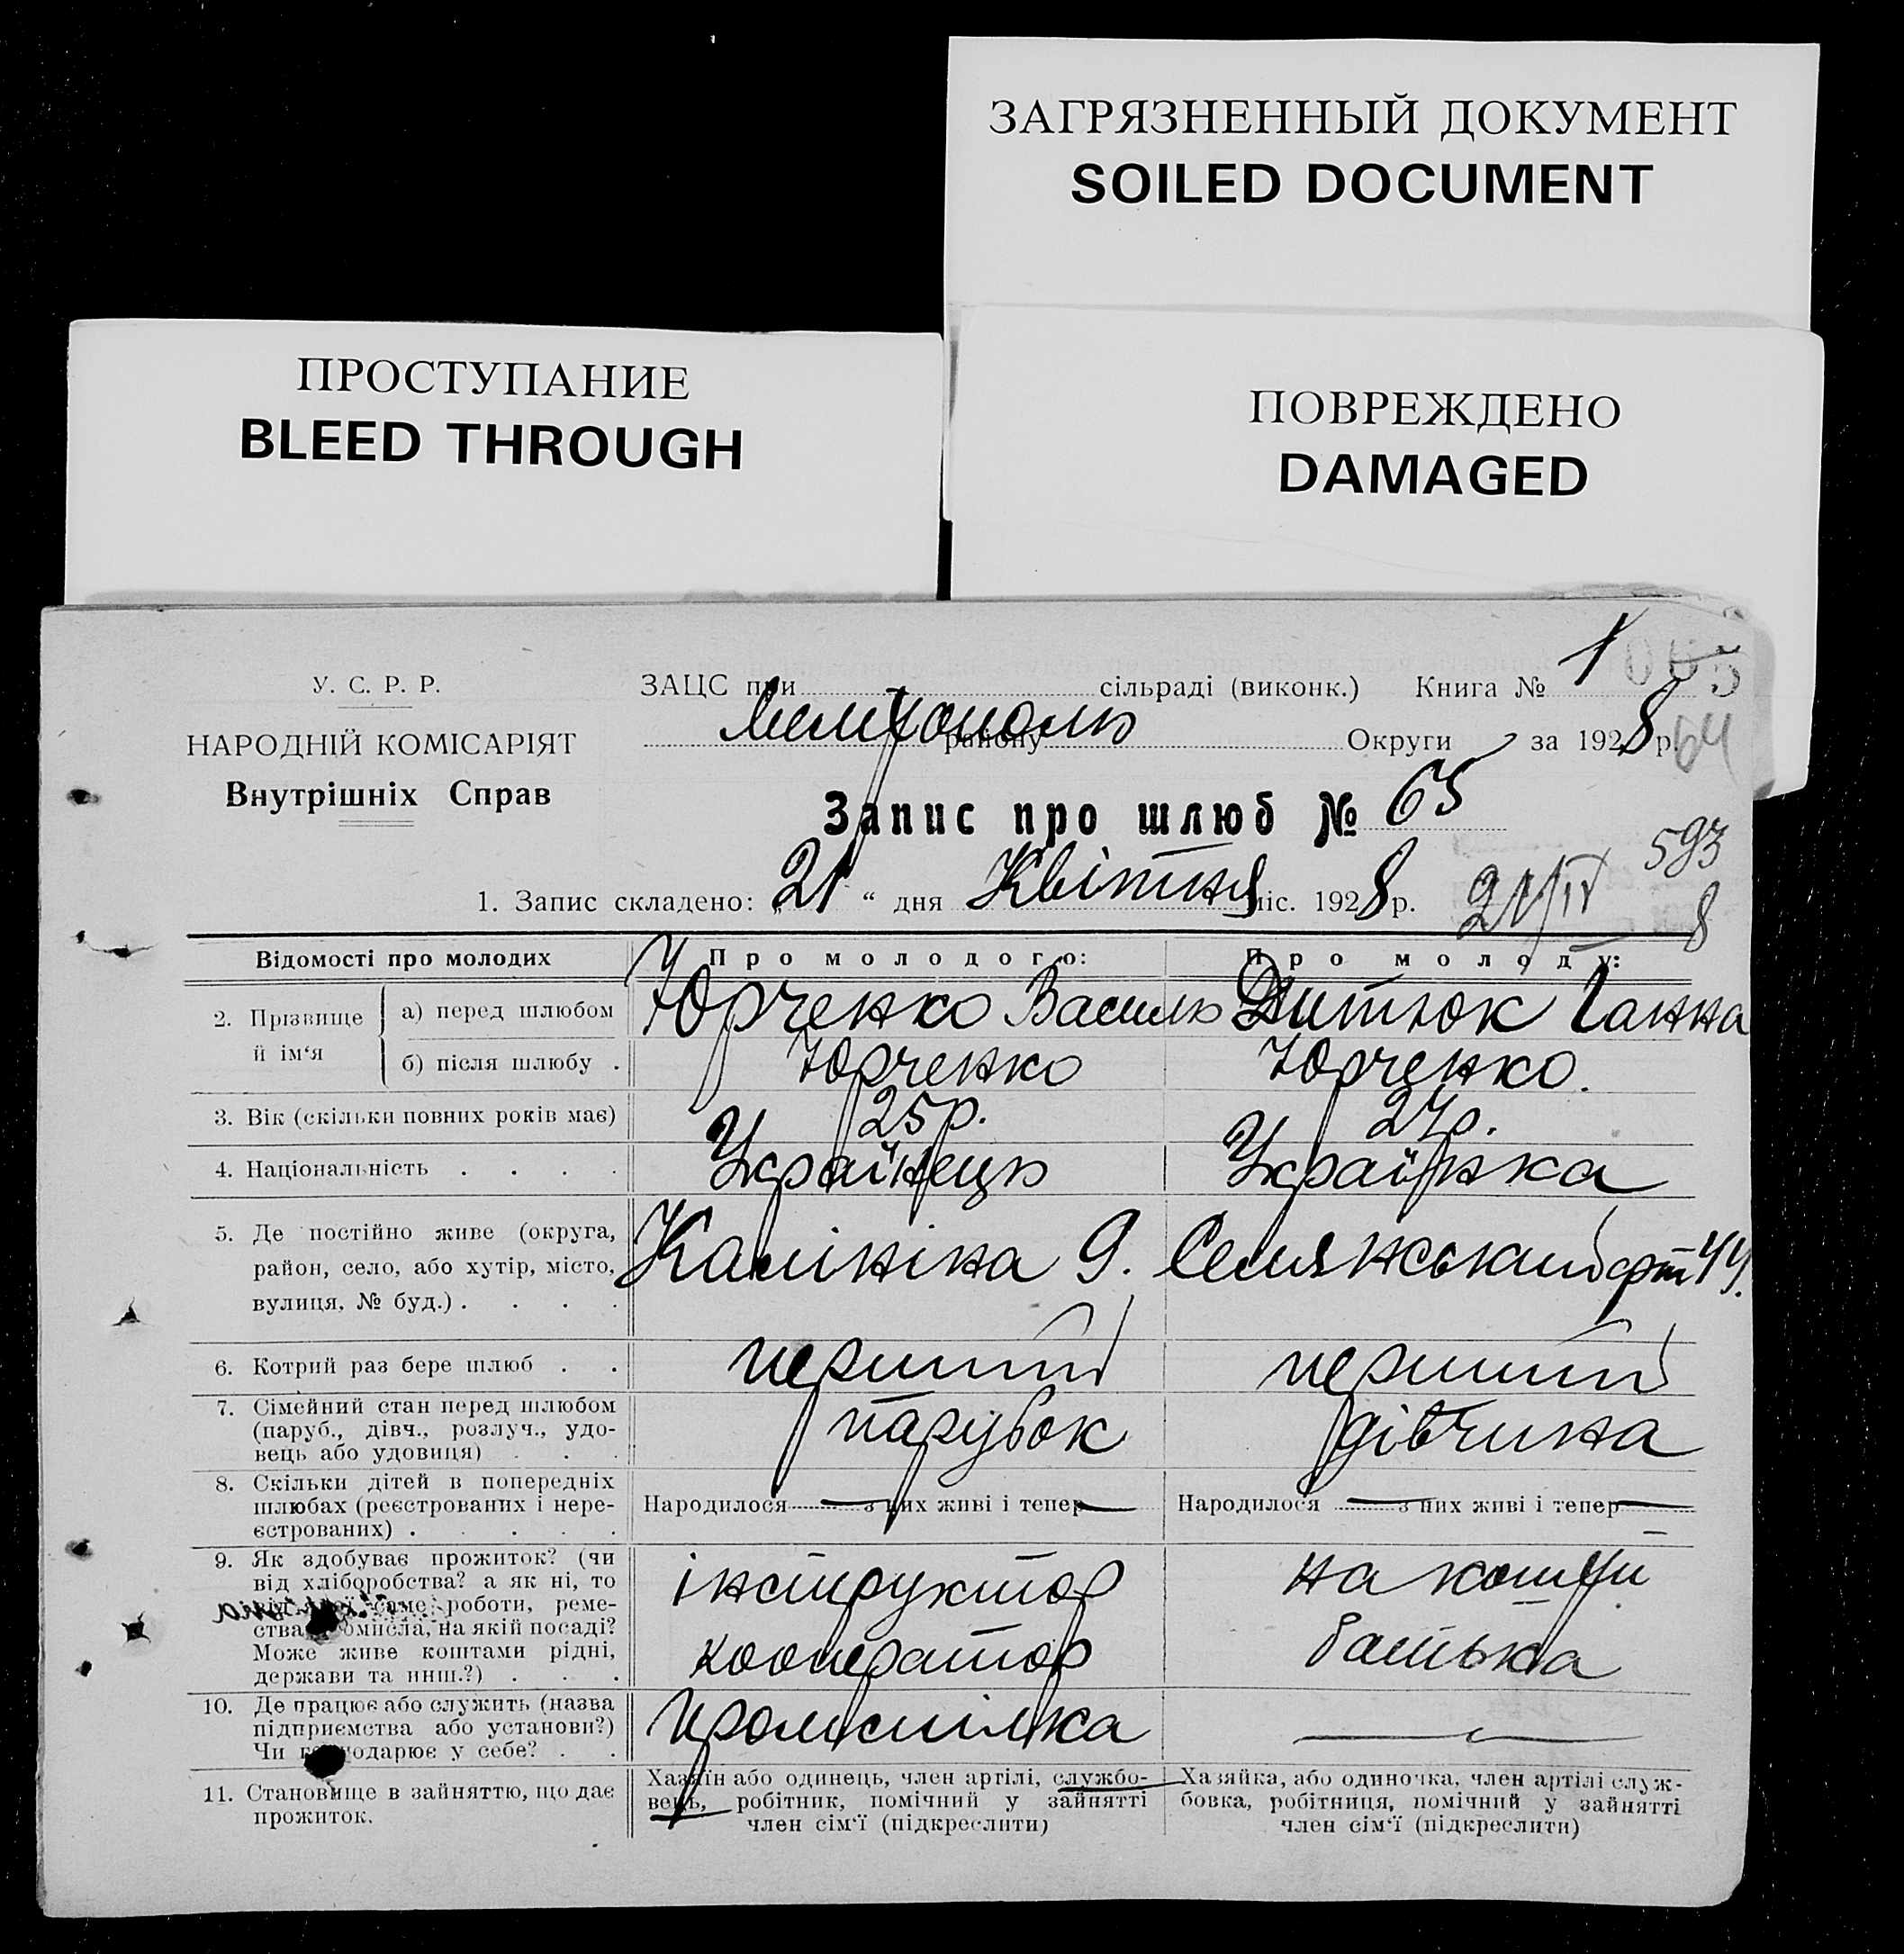 ЗАГРЯЗНЕННЫЙ ДОКУМЕНТ
SOILED DOCUMENT
ПРОСТУПАНИЕ
BLEED THROUGH
ПОВРЕЖДЕНО
DAMAGED
У. С. Р. Р.
НАРОДНІЙ КОМІСАРІЯТ
Внутрішніх Справ
ЗАЦС при сільраді (виконк.) Книга № 1
Мелітополь району Округи за 1928 р. 64
Запис про шлюб № 65
593
1. Запис складено: „21“ дня Квітня міс. 1928 р. 21/IV 8
Відомості про молодих
Про молодого:
Про молоду:
2. Прізвище й ім‘я
а) перед шлюбом
Юрченко Василь
Дитюк Ганна
б) після шлюбу .
Юрченко
Юрченко.
3. Вік (скільки повних років має)
25р.
27р.
4. Національність . . . .
Українець
Українка
5. Де постійно живе (округа,
район, село, або хутір, місто,
вулиця, № буд.) . . . .
Калініна 9.
Селянський 44.
6. Котрий раз бере шлюб . .
перший
перший
7. Сімейний стан перед шлюбом
(паруб., дівч., розлуч., удо-
вець або удовиця) . . .
парубок
дівчина
8. Скільки дітей в попередніх
шлюбах (реєстрованих і нере-
єстрованих) . . . . .
Народилося — з них живі і тепер —
Народилося — з них живі і тепер —
9. Як здобуває прожиток? (чи
від хліборобства? а як ні, то
саме роботи, реме-
ства, на якій посаді?
Може живе коштами рідні,
держави та инш.?) . . .
інструктор
кооператор
на кошти
батька
10. Де працює або служить (назва
підприємства або установи?)
Чи у себе? . .
Промспілка
—
11. Становище в зайняттю, що дає
прожиток.
Хазяїн або одинець, член артілі, службо-
вець, робітник, помічний у зайнятті
член сім‘ї (підкреслити)
Хазяйка, або одиночка, член артілі служ-
бовка, робітниця, помічний у зайнятті
член сім‘ї (підкреслити)